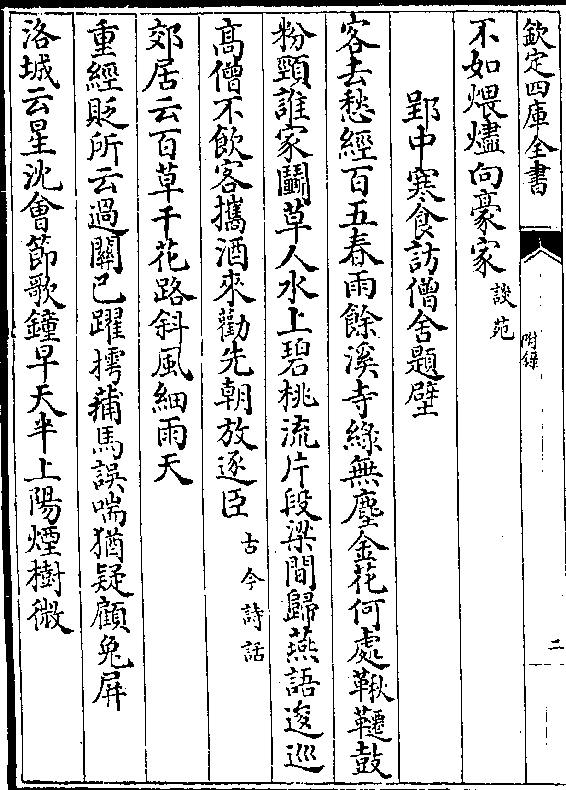 欽定四庫全書
附錄
二
不如煨燼向豪家 談苑
郢中寒食訪僧舍題壁
客去愁經百五春雨餘溪寺綠無塵金花何處鞦韆鼓
粉頸誰家鬬草人水上碧桃流片段梁間歸燕語逡巡
高僧不飲客攜酒來勸先朝放逐臣 古今詩話
郊居云百草千花路斜風細雨天
重經貶所云過關已躍摴蒱馬誤喘猶疑顧兔屏
洛城云星沈會節歌鐘早天半上陽煙樹微